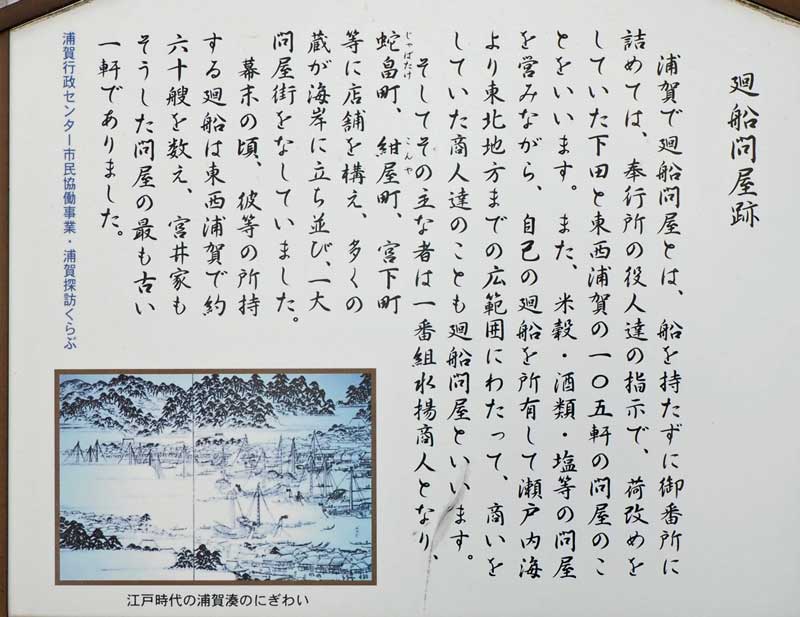 廻船問屋跡
浦賀で廻船問屋とは、船を持たずに御番所に
詰めては、奉行所の役人達の指示で、荷改めを
していた下田と東西浦賀の一〇五軒の問屋のこ
とをいいます。また、米穀・酒類・塩等の問屋
を営みながら、自己の廻船を所有して瀬戸内海
より東北地方までの広範囲にわたって、商いを
していた商人達のことも廻船問屋といいます。
そしてその主な者は一番組水揚商人となり、
じゃばたけ こんや
蛇畠町、紺屋町、宮下町
等に店舗を構え、多くの
蔵が海岸に立ち並び、一大
問屋街をなしていました。
幕末の頃、彼等の所持
する廻船は東西浦賀で約
六十艘を数え、宮井家も
そうした問屋の最も古い
一軒でありました。
浦賀行政センター市民協働事業・浦賀探訪くらぶ
江戸時代の浦賀湊のにぎわい